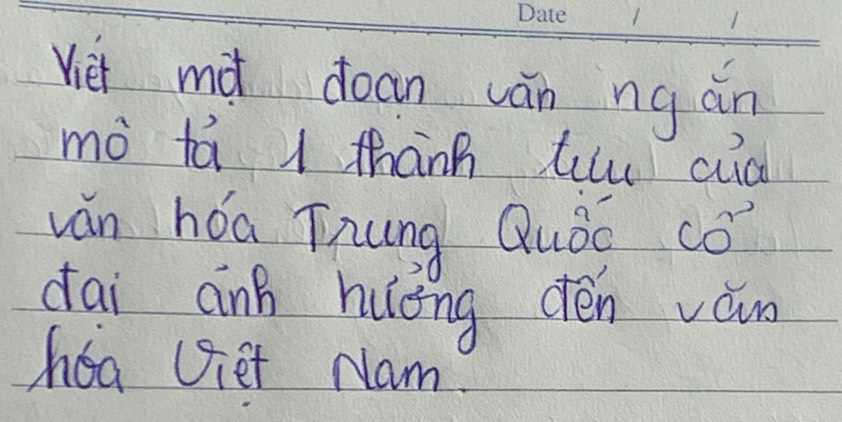 Date / /
Viết một đoạn văn ngắn
mô tả 1 thành tựu của
văn hóa Trung Quốc cổ
đại ảnh hưởng đến văn
hóa Việt Nam.